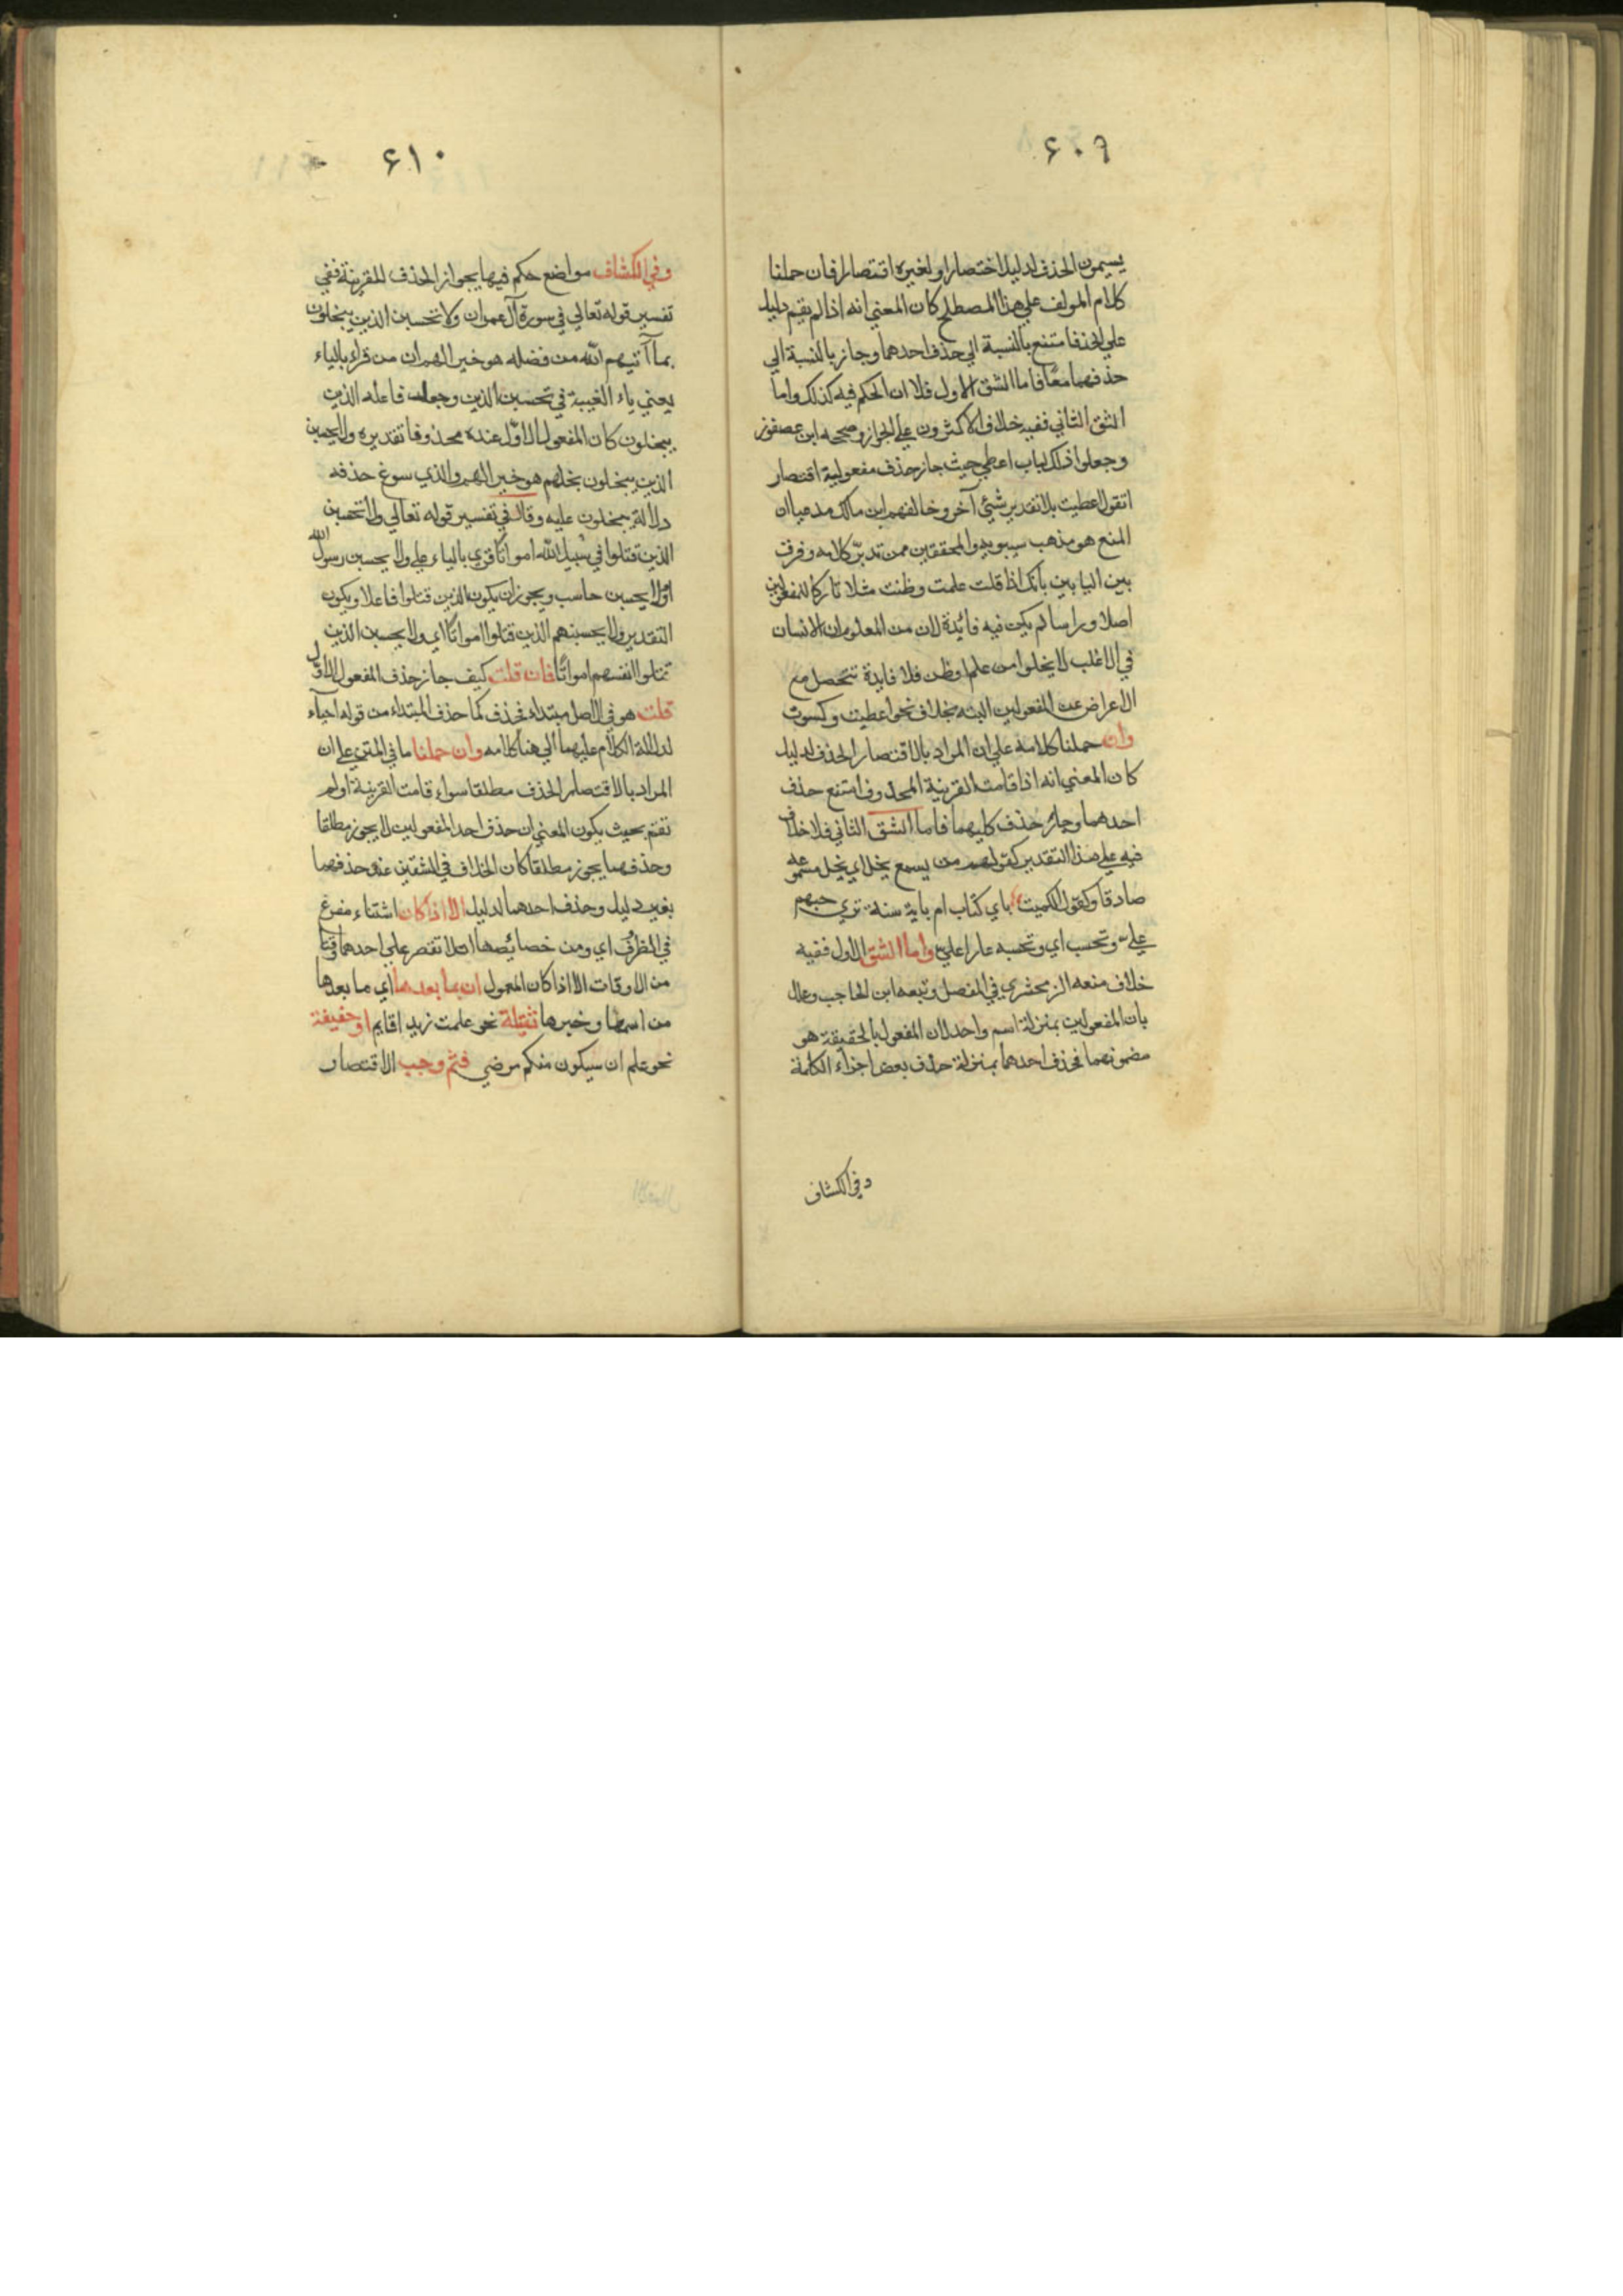 ٦٠٩
يسمون الحذف لدليل اختصارا ولغيره اقتصارا فان حملنا
كلام المولف علي هذا المصطلح كان المعني انه اذا لم يقم دليل
علي الحذف امتنع بالنسبة الي حذف احدهما وجاز بالنسبة الي
حذفهما معًا فاما الشق الاول فلا ان الحكم فيه كذلك واما
الشق الثاني ففيه خلاف الاكثرون علي الجواز وصححه ابن عصفور
وجعلوا ذلك لباب اعطي حيث جاز حذف مفعوليه اقتصار
اتقول اعطيت بلا تقدير شيئ آخر وخالفهم ابن مالك مدعيا ان
المنع هو مذهب سيبويه والمحققين ممن تدبّر كلامه وفرق
بين البابين بانك اذا قلت علمت وظننت مثلا تاركا للمفعولين
اصلا وراسا لم يكن فيه فائدة لان من المعلوم ان الانسان
في الاغلب لا يخلوا من علم او ظن فلا فايدة تتحصل مع
الاعراض عن المفعولين البته بخلاف نحو اعطيت وكسوت
وان حملنا كلامه علي ان المراد بالاقتصار الحذف لدليل
كان المعني انه اذا قامت القرينة المحذوف امتنع حذف
احدهما وجاز حذف كليهما فاما الشق الثاني فلا خلاف
فيه علي هذا التقدير كقولهم من يسمع يخل اي يخل مسموعه
صادقا وكقول الكميت باي كتاب ام باية سنة تري حبهم
علي وتحسب اي وتحسبه عارا علي واما الشق الاول ففيه
خلاف منعه الزمخشري في المفصل وتبعه ابن الحاجب وعلل
بان المفعولين بمنزلة اسم واحد لان المفعول بالحقيقة هو
مضمونهما فحذف احدهما بمنزلة حذف بعض اجزاء الكلمة
وفي الكشاف
٦١٠
وفي الكشاف مواضع حكم فيها بجواز الحذف للقرينة ففي
تفسير قوله تعالي في سورة آل عمران ولا تحسبن الذين يبخلون
بما آتيهم الله من فضله هو خيرا لهم ان من قراء بالياء
يعني ياء الغيبة في تحسبن الذين وجعل فاعله الذين
يبخلون كان المفعول الاوّل عنده محذوفا تقديره ولا يحسبن
الذين يبخلون بخلهم هو خيرا لهم والذي سوغ حذفه
دلالة يبخلون عليه وقال في تفسير قوله تعالي ولا تحسبن
الذين قتلوا في سبيل الله امواتا قري بالياء علي ولا يحسبن رسول الله
او لا يحسبن حاسب ويجوز ان يكون الذين قتلوا فاعلا ويكون
التقدير ولا يحسبنهم الذين قتلوا امواتا اي ولا يحسبن الذين
قتلوا انفسهم امواتًا فان قلت كيف جاز حذف المفعول الاوّل
قلت هو في الاصل مبتداء فحذف كما حذف المبتداء من قوله احيآء
لدلالة الكلام عليهما الي هنا كلامه وان حملنا ما في المتن علي ان
المراد بالاقتصار الحذف مطلقا سواء قامت القرينة اولم
تقم بحيث يكون المعني ان حذف احد المفعولين لا يجوز مطلقا
وحذفهما يجوز مطلقا كان الخلاف في الشقين عند حذفهما
بغير دليل وحذف احدهما لدليل الا اذا كان استثناء مفرغ
في الظرف اي ومن خصائصها ان لا تقتصر علي احدهما وقتا
من الاوقات الا اذا كان المعمول ان بما بعدها اي ما بعدها
من اسمها وخبرها ثقيلة نحو علمت زيدا قايم او خفيفة
نحو علم ان سيكون منكم مرضي فثم وجب الاقتصار